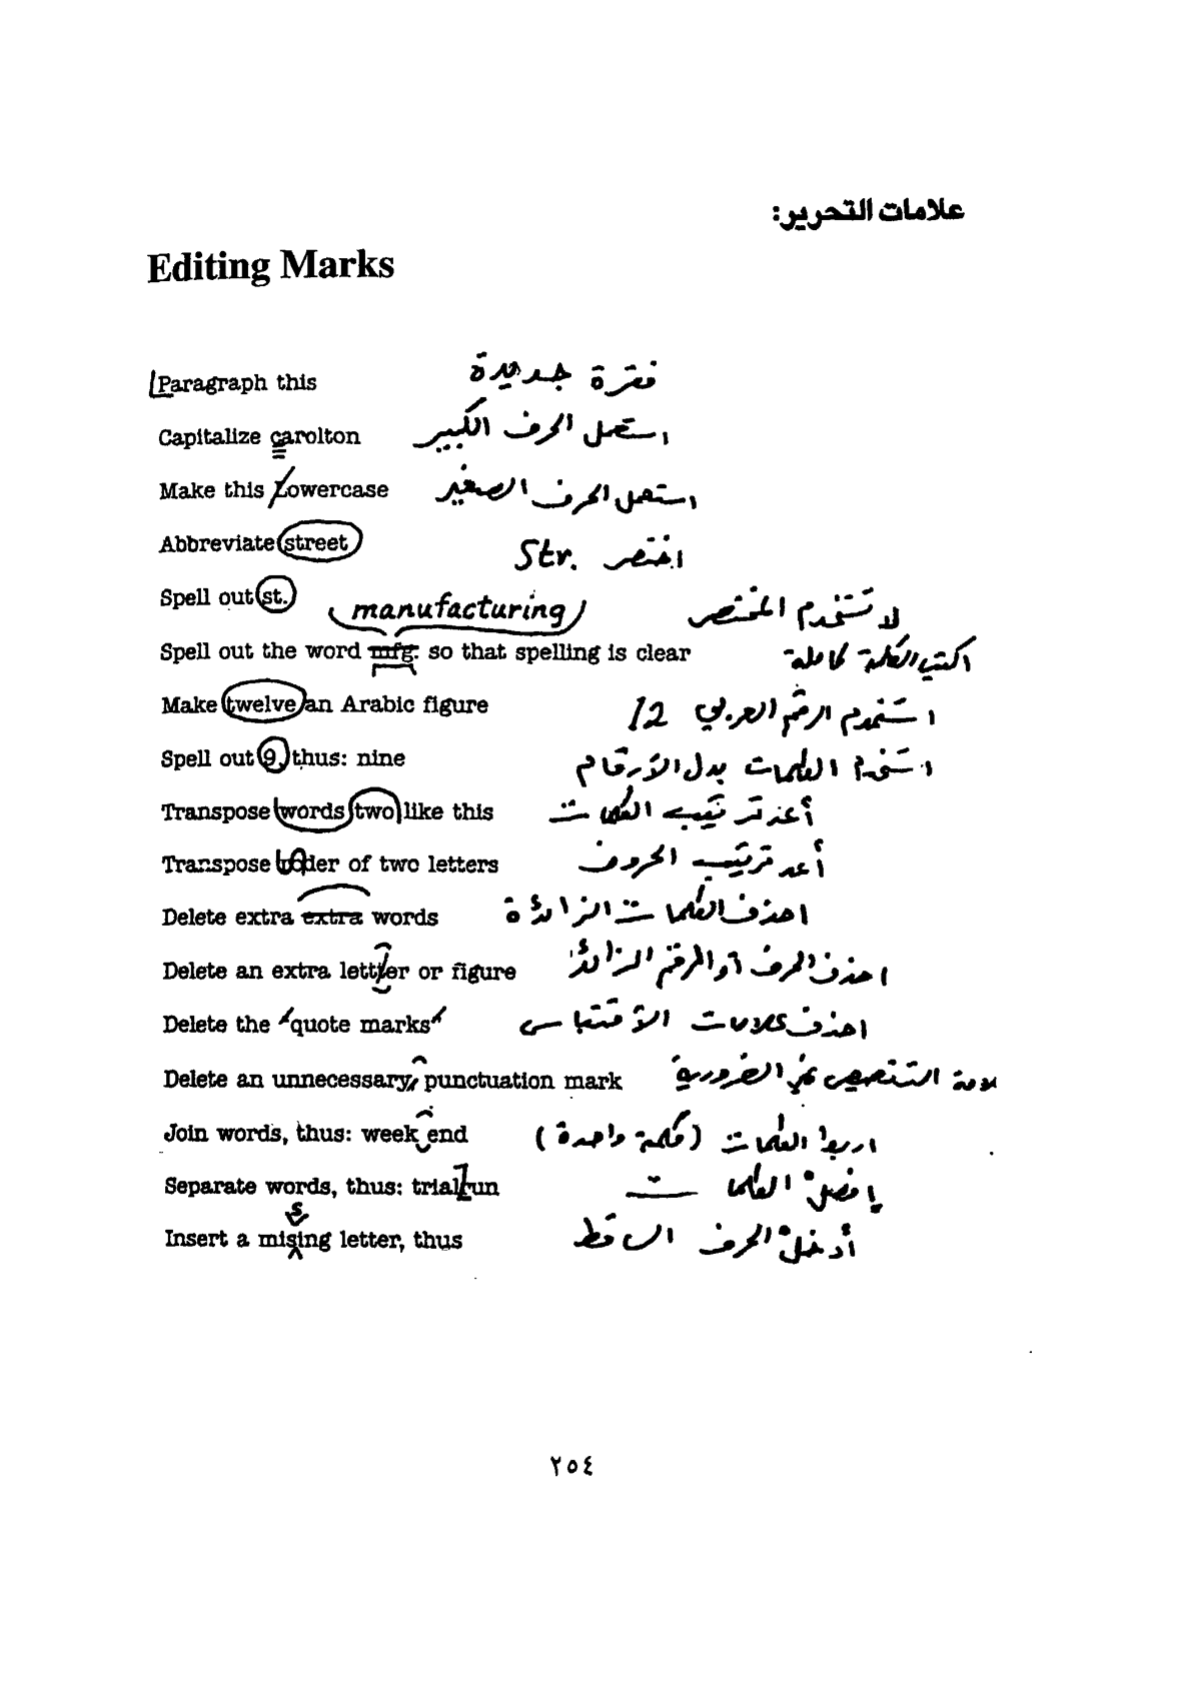 علامات التحرير:
Editing Marks
Paragraph this فقرة جديدة
Capitalize carolton استعمل الحرف الكبير
Make this Lowercase استعمل الحرف الصغير
Abbreviate street اختصر Str.
Spell out st. لا تستخدم المختصر
manufacturing
Spell out the word mfg. so that spelling is clear اكتب الكلمة كاملة
Make twelve an Arabic figure استخدم الرقم العربي 12
Spell out 9, thus: nine استخدم الكلمات بدل الأرقام
Transpose words two like this أعد ترتيب الكلمات
Transpose of two letters أعد ترتيب الحروف
Delete extra extra words احذف الكلمات الزائدة
Delete an extra letter or figure احذف الحرف أو الرقم الزائد
Delete the "quote marks" احذف علامات الاقتباس
Delete an unnecessary, punctuation mark الضرورية
Join words, thus: week end اربط الكلمات (كلمة واحدة)
Separate words, thus: trialrun افصل الكلمات
s
Insert a mising letter, thus أدخل الحرف الساقط
٢٥٤